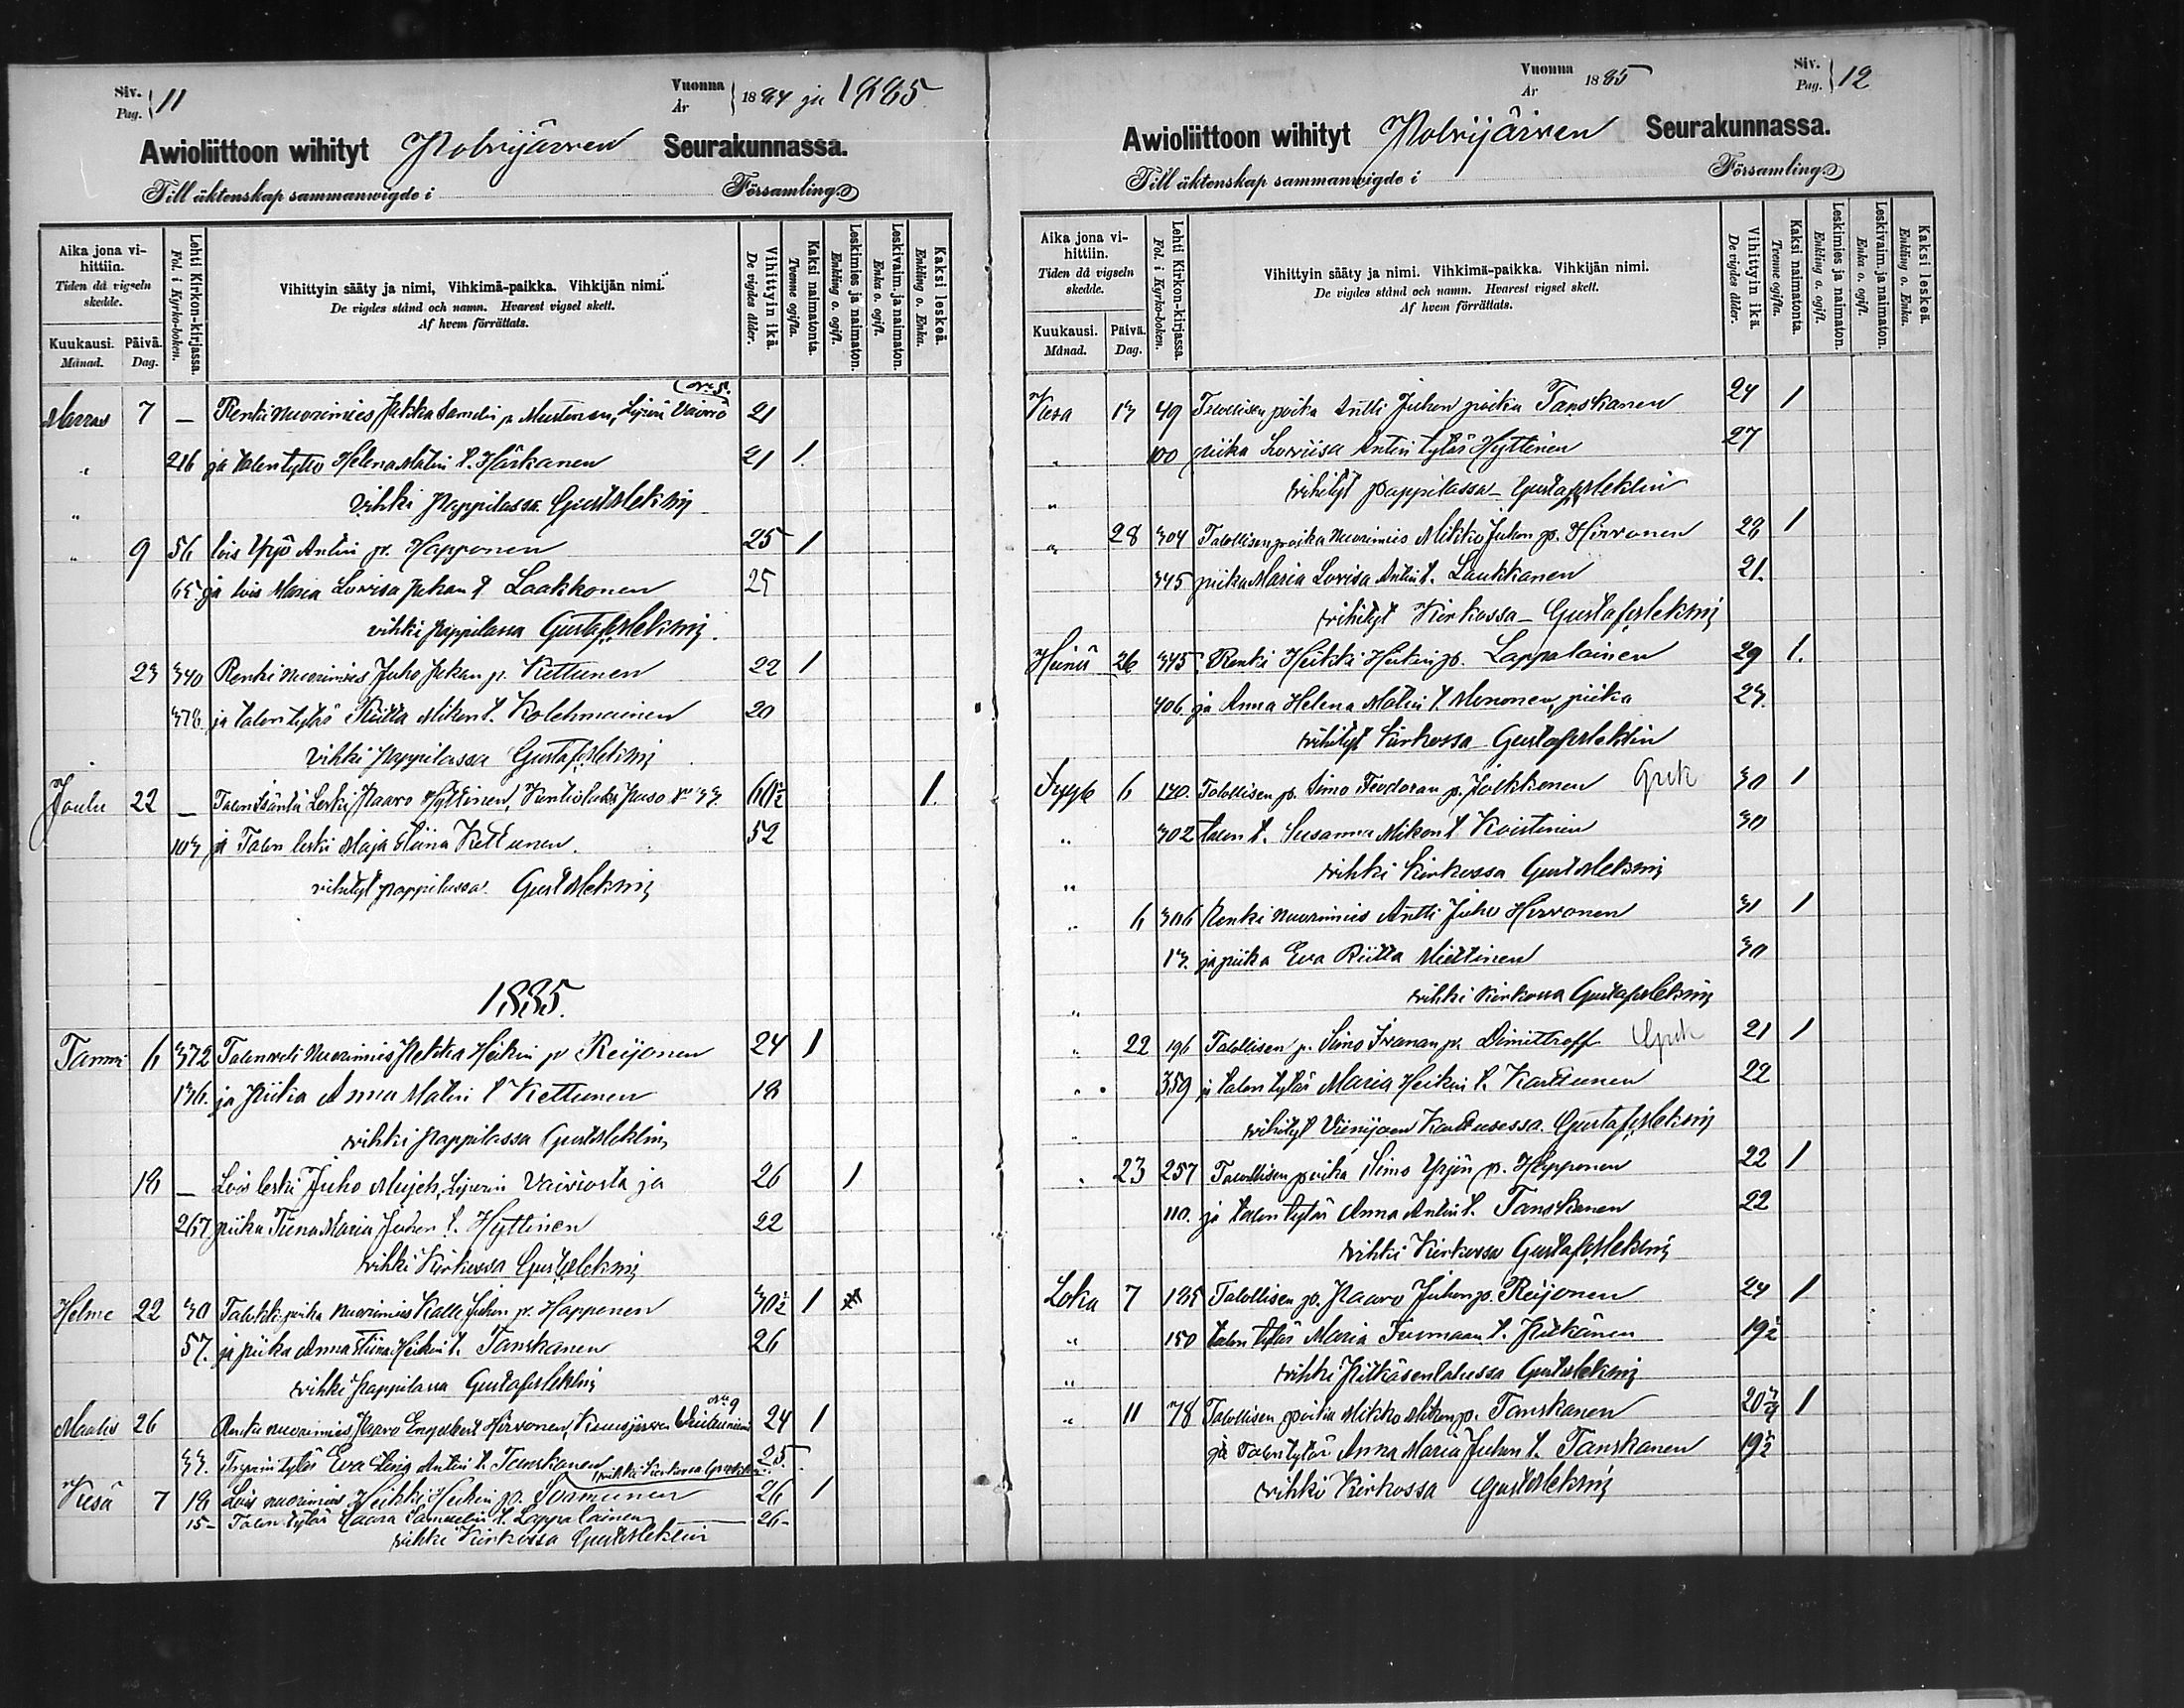 Siv. Pag. 11
Vuonna År 1884 ja 1885
Awioliittoon wihityt Polvijärven Seurakunnassa.
Till äktenskap sammanwigde i Församling
Aika jona vihittiin. Tiden då vigseln skedde.
Kuukausi. Månad.
Päivä. Dag.
Lehti Kirkon-kirjassa. Fol. i Kyrko-boken.
Vihittyin sääty ja nimi, Vihkimä-paikka. Vihkijän nimi.
De vigdes stånd och namn. Hvarest vigsel skett.
Af hvem förrättats.
Vihittyin ikä. De vigdes ålder.
Kaksi naimatonta. Tvenne ogifta.
Leskimies ja naimaton. Enkling o. ogift.
Leskivaim. ja naimaton. Enka o. ogift.
Kaksi leskeä. Enkling o. Enka.
Marras 7 — Renki nuorimies Pekka Samulin p. Mustonen, Liperin Vaivio 21
" 216 ja talon tyttö Helena Matin t. Härkänen 21 1.
" vihki pappilassa Gust Meklin
" 9 56 lois Yrjö Antin p. Happonen 25 1
65 ja lois Maria Lovisa Juhan t. Laakkonen 25
vihki pappilassa Gustaf Meklin
23 340 Renki nuorimies Juho Pekan p. Kettunen 22 1
378. ja talon tytär Riitta Mikon t. Kolehmainen 20
vihki pappilassa Gustaf Meklin
Joulu 22 — Talon isäntä Leski Paavo Hyttinen, 60½ 1.
103 ja Talon leski Maja Stiina Kettunen. 52
vihityt pappilassa Gust Meklin
1885.
Tammi 6 372 Talon veli nuorimies Pekka Heikin p. Reijonen 24 1
136. ja Piika Anna Matin t Kettunen 18
vihki pappilassa Gust Meklin
18 — Lois leski Juho Mujeh, Liperin Vaiviosta ja 26 1
267 piika Tiina Maria Juhon t. Hyttinen 22
vihki Kirkossa Gust Meklin
Helme 22 30 poika nuorimies Kalle Juhon p. Happonen 30½ 1
57. ja piika Anna Stiina Heikin t. Tanskanen 26
vihki pappilassa Gustaf Meklin
Maalis 26 Renki nuorimies Paavo Engelbert Hirvonen, Kuusjärven 24 1
33. tytär Eva Antin t. Tanskanen 25.
vihki Kirkossa
Kesä 7 18 Lois nuorimies Heikki Heikin p. Sormunen 26 1
15- Talon tytär Laara Samuelin t. Lappalainen 26-
vihki Kirkossa Gust Meklin
Siv. Pag. 12
Vuonna År 1885
Awioliittoon wihityt Polvijärven Seurakunnassa.
Till äktenskap sammanwigde i Församling
Aika jona vihittiin. Tiden då vigseln skedde.
Kuukausi. Månad.
Päivä. Dag.
Lehti Kirkon-kirjassa. Fol. i Kyrko-boken.
Vihittyin sääty ja nimi. Vihkimä-paikka. Vihkijän nimi.
De vigdes stånd och namn. Hvarest vigsel skett.
Af hvem förrättats.
Vihittyin ikä. De vigdes ålder.
Kaksi naimatonta. Tvenne ogifta.
Leskimies ja naimaton. Enkling o. ogift.
Leskivaim. ja naimaton. Enka o. ogift.
Kaksi leskeä. Enkling o. Enka.
Kesä 13 49 Talollisen poika Antti Juhon poika Tanskanen 24 1
" 100 piika Loviisa Antin tytär Hyttinen 27
" vihityt pappilassa – Gustaf Meklin
" 28 304 Talollisen poika nuorimies Mikko Juhon p. Hirvonen 26 1
345 piika Maria Lovisa Antin t. Laukkanen 21.
vihityt Kirkossa – Gustaf Meklin
Heinä 26 345 Renki Heikki Heikin p. Lappalainen 29 1.
406 ja Anna Helena Matin t Mononen, piika 23.
vihityt Kirkossa Gustaf Meklin
Syys 6 140. Talollisen p. Simo Feodoran p. Jolkkonen Grek 30 1
" 302 talon t. Susanna Mikon t Koistinen 30
" vihki Kirkossa Gust Meklin
" 6 306 Renki nuorimies Antti Juho Hirvonen 31 1
13. ja piika Eva Riitta Miettinen 30
" vihki Kirkossa Gustaf Meklin
" 22 196 Talollisen p. Simo Ivanan p. Dimittroff Grek 21 1
" 359 ja talon tytär Maria Heikin t. Karttunen 22
" vihityt Viinijoen Gustaf Meklin
" 23 257 Talollisen poika Simo Yrjön p. Happonen 22 1
110. ja talon tytär Anna Antin t. Tanskanen 22
vihki Kirkossa Gustaf Meklin
Loka 7 185 Talollisen p. Paavo Juhon p. Reijonen 24 1
" 150 talon tytär Maria Tuomaan t. Pitkänen 19½
" vihki Pitkäsen talossa Gust Meklin
" 11 78 Talollisen poika Mikko Mikon p. Tanskanen 20¾ 1
ja talon tytär Anna Maria Juhon t. Tanskanen 19½
vihki Kirkossa Gust Meklin